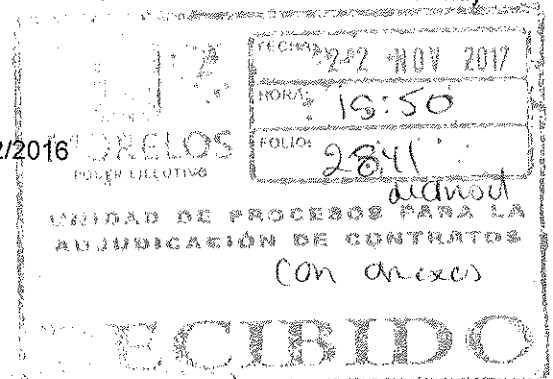 FECHA: 22 NOV 2017
HORA: 15:50
2/2016
MORELOS
PODER EJECUTIVO
FOLIO: 2841
UNIDAD DE PROCESOS PARA LA
ADJUDICACIÓN DE CONTRATOS
Con anexos
RECIBIDO